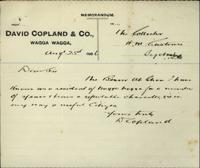 MEMORANDUM.
DAVID COPLAND & CO.,
WAGGA WAGGA,
Augt 23rd 1906
The Collector
H.M. Customs
Sydney
Dear Sir
The Bearer
known as a resident of Wagga Wagga for a number
of years & bears a reputable character, & is in
my way a useful Citizen
Yours truly
D Copland